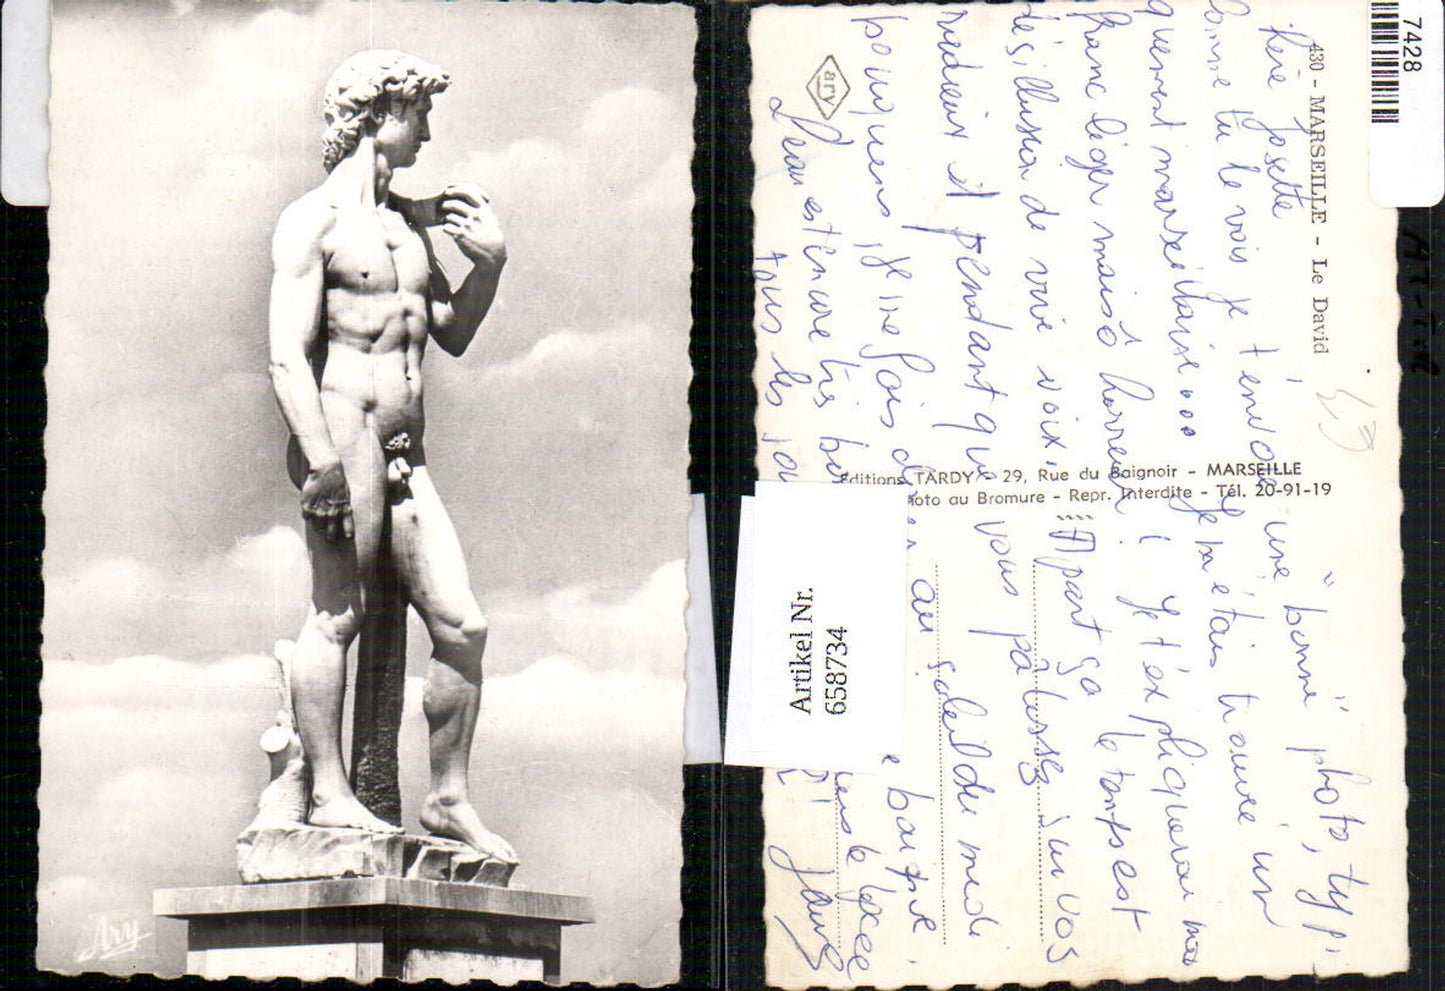 Ary
7428
ary
430 - MARSEILLE - Le David
Editions TARDY - 29, Rue du Baignoir - MARSEILLE
Photo au Bromure - Repr. Interdite - Tél. 20-91-19
Artikel Nr.
658734
Chère Josette
Comme tu le vois je t'envoie une "bonne" photo, typi
quement marseillaise... Je m'étais trouvé un
franc léger mais ô horreur! Je t'expliquerai ma
désillusion de vive voix. Apart ça le temps est
radieux et pendant que vous palissez sur vos
bouquins, je me fais dorer au soleil du midi
L'eau est encore très bo e baigne
tous les jo